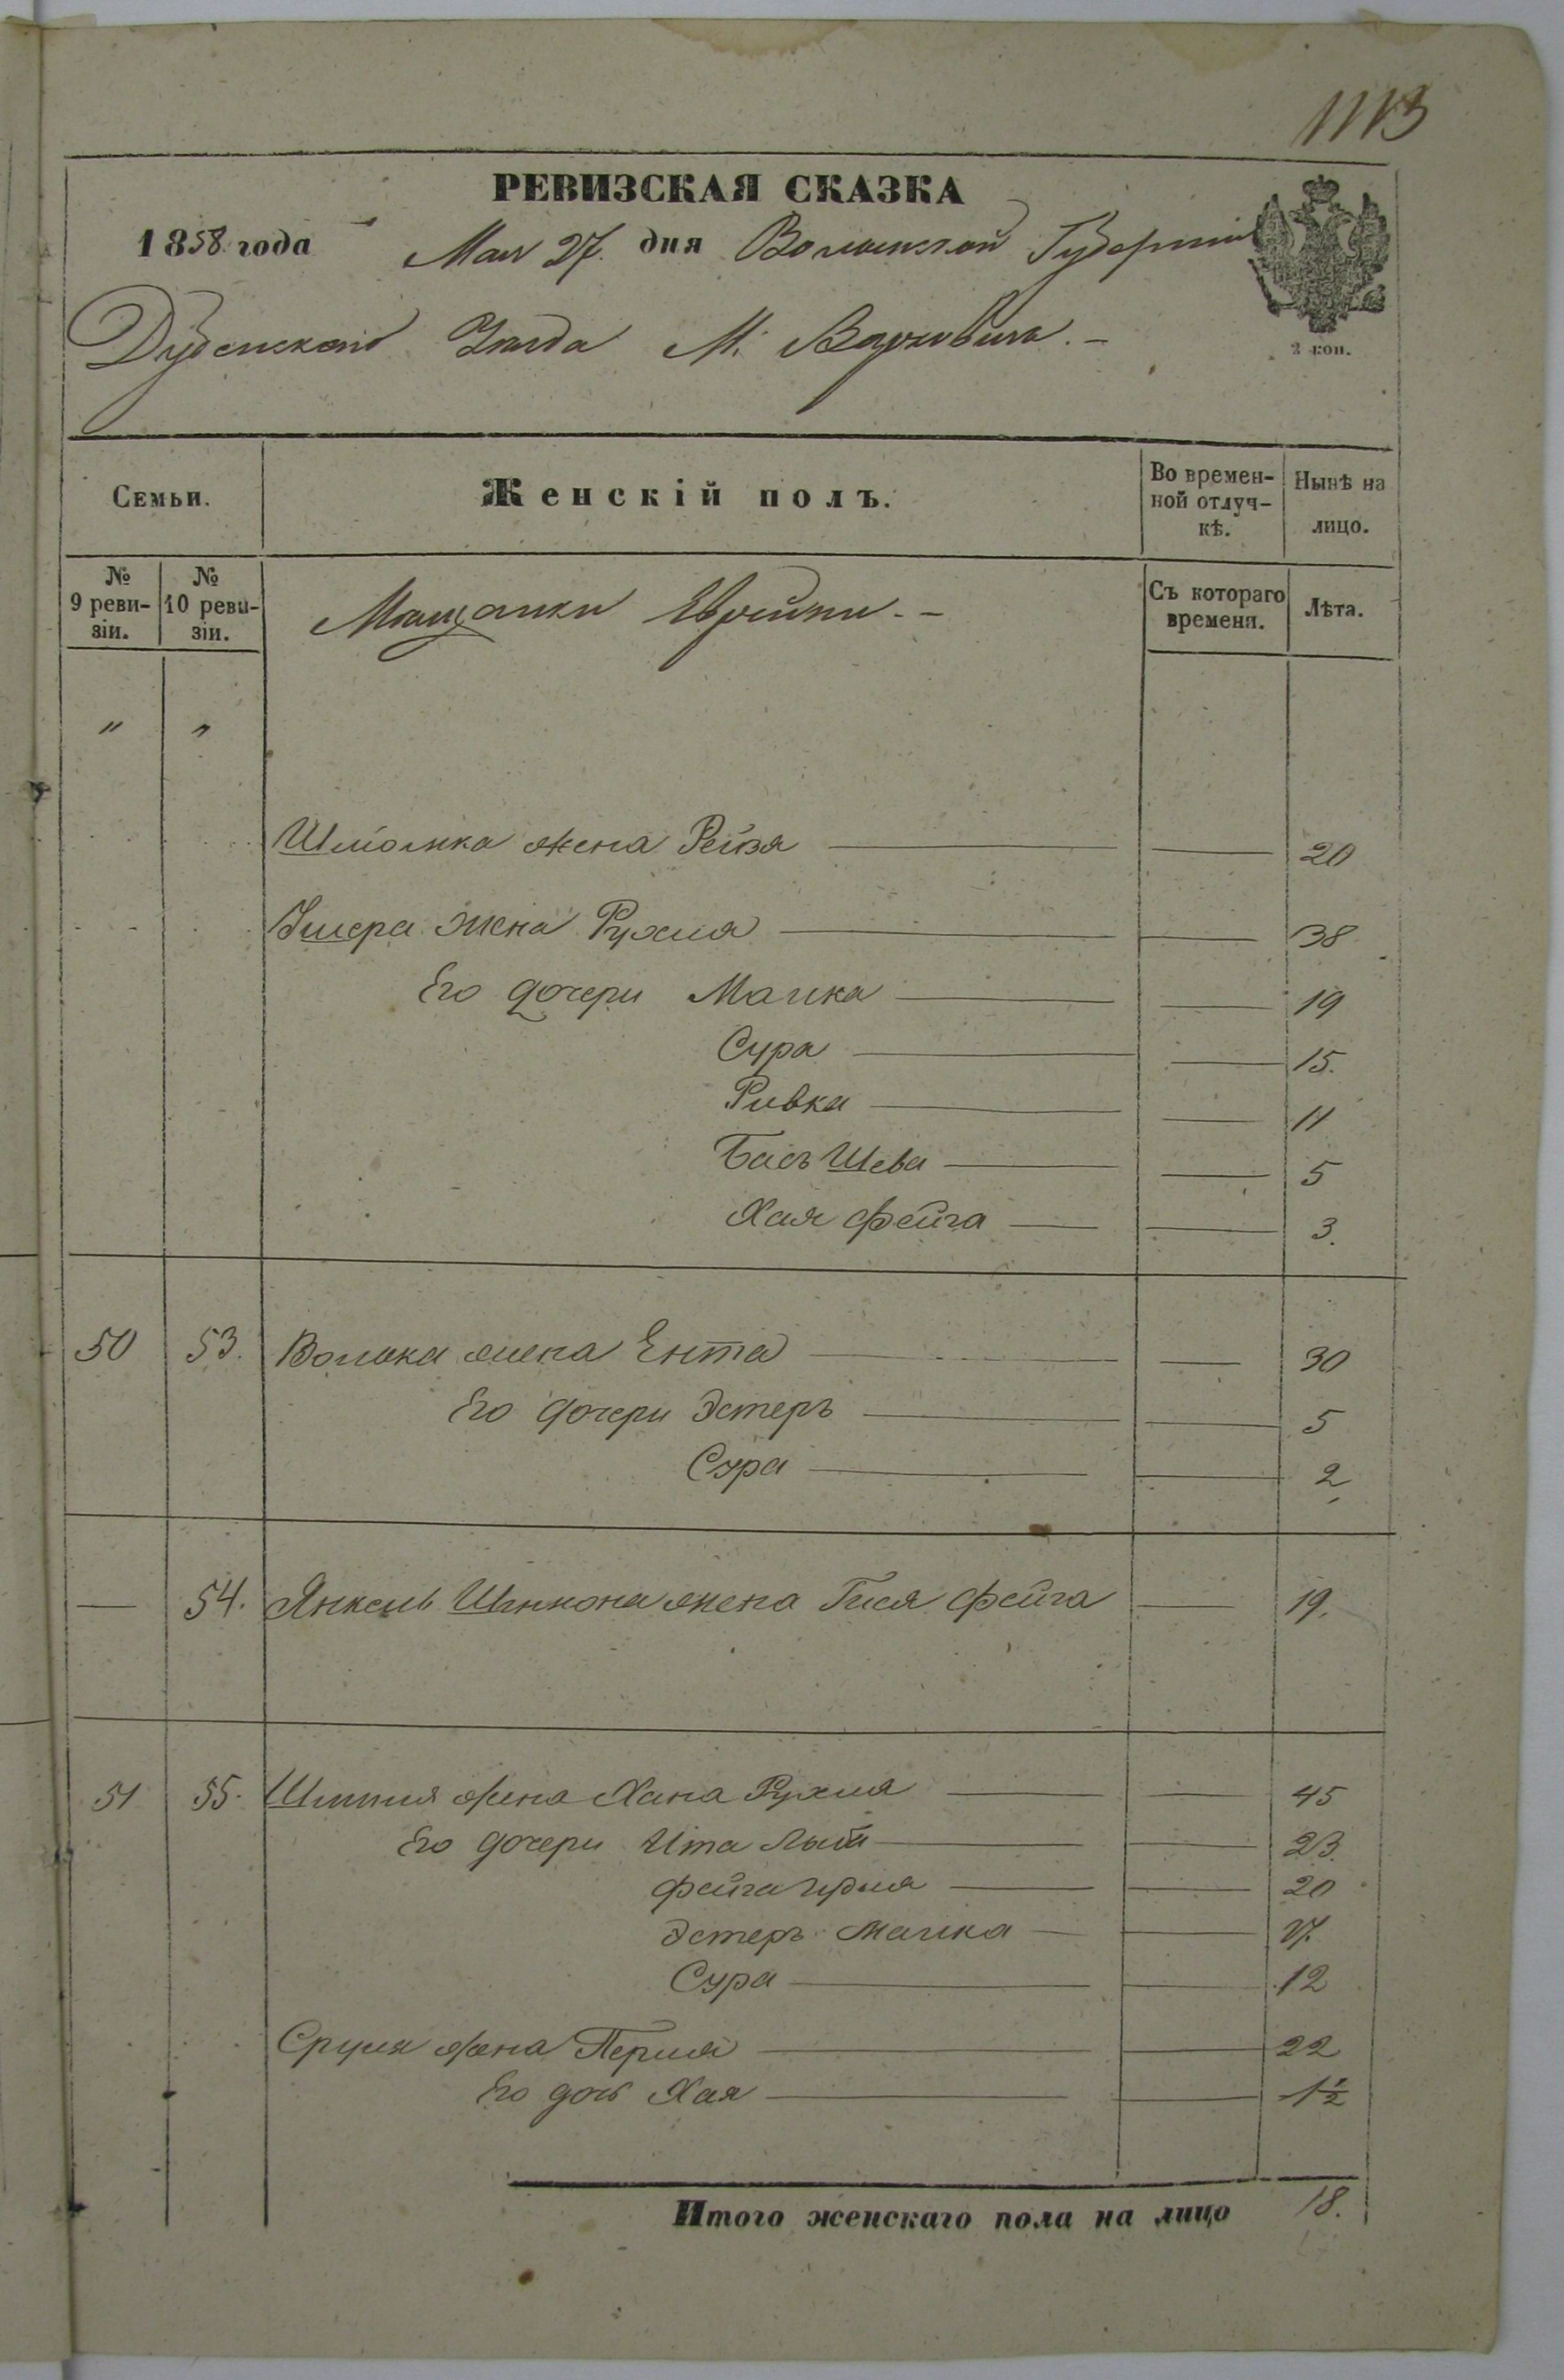 1113
РЕВИЗСКАЯ СКАЗКА
1858 года Мая 27. дня Волынской Губернии
Дубенскаго Уезда М. Варковичь. –
2 коп.
Семьи. Женскій полъ. Во времен- Нынѣ на
ной отлуч- лицо.
кѣ.
№ № Мещанки Еврейки. – Съ котораго Лѣта.
9 реви- 10 реви- времени.
зіи. зіи.
" "
Шлiомка жена Рейзя — — 20
жена Рухля — — 38
Его дочери Малка — — 19
Сура — — 15.
Ривка — — 11
Бась Шева — — 5
Хая Фейга — — 3.
50 53. Волька жена Ента — — 30
Его дочери Эстеръ — — 5
Сура — — 2
— 54. Янкель жена Гися Фейга — 19.
51 55. жена Хана Рухля — — 45
Его дочери Ита — — 23.
Фейга — — 20
Эстеръ Малка — — 17.
Сура — — 12
Сруля жена Перля — — 22
Его дочь Хая — — 1½
Итого женскаго пола на лицо 18.